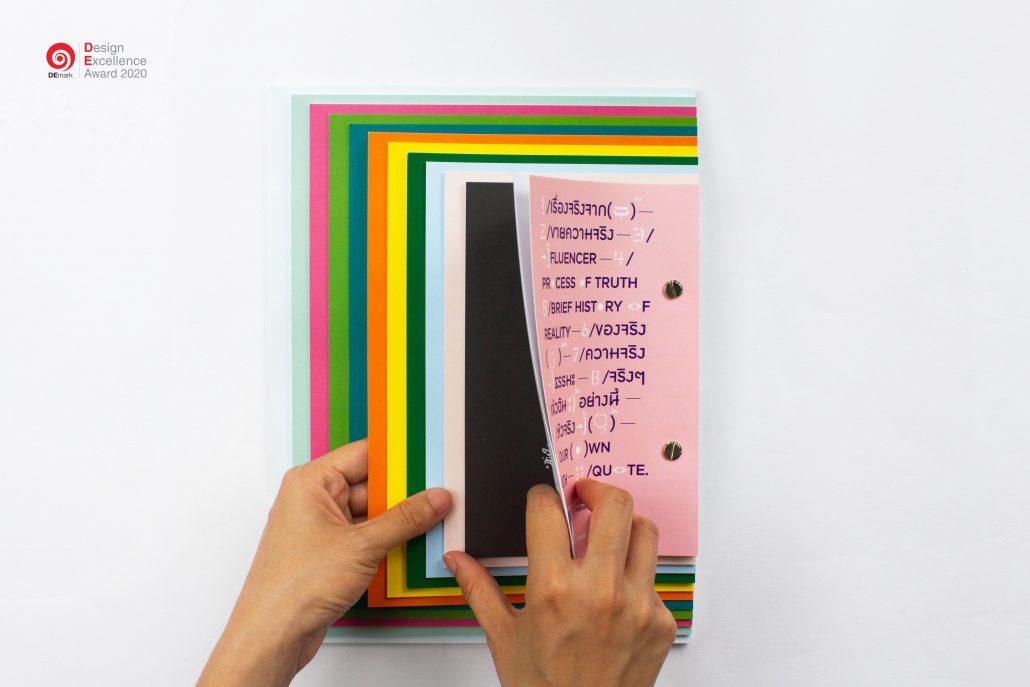 DEmark
Design
Excellence
Award 2020
1/เรื่องจริงจาก( )—
2/ขายความจริง—3/
FLUENCER—4/
PR CESS F TRUTH
5/BRIEF HIST RY <>F
REALITY—6/ของจริง
( )—7/ความจริง
— 8/จริงๆ
อย่างนี้ —
( ) —
OUR ( )WN
—11/QU<>TE.